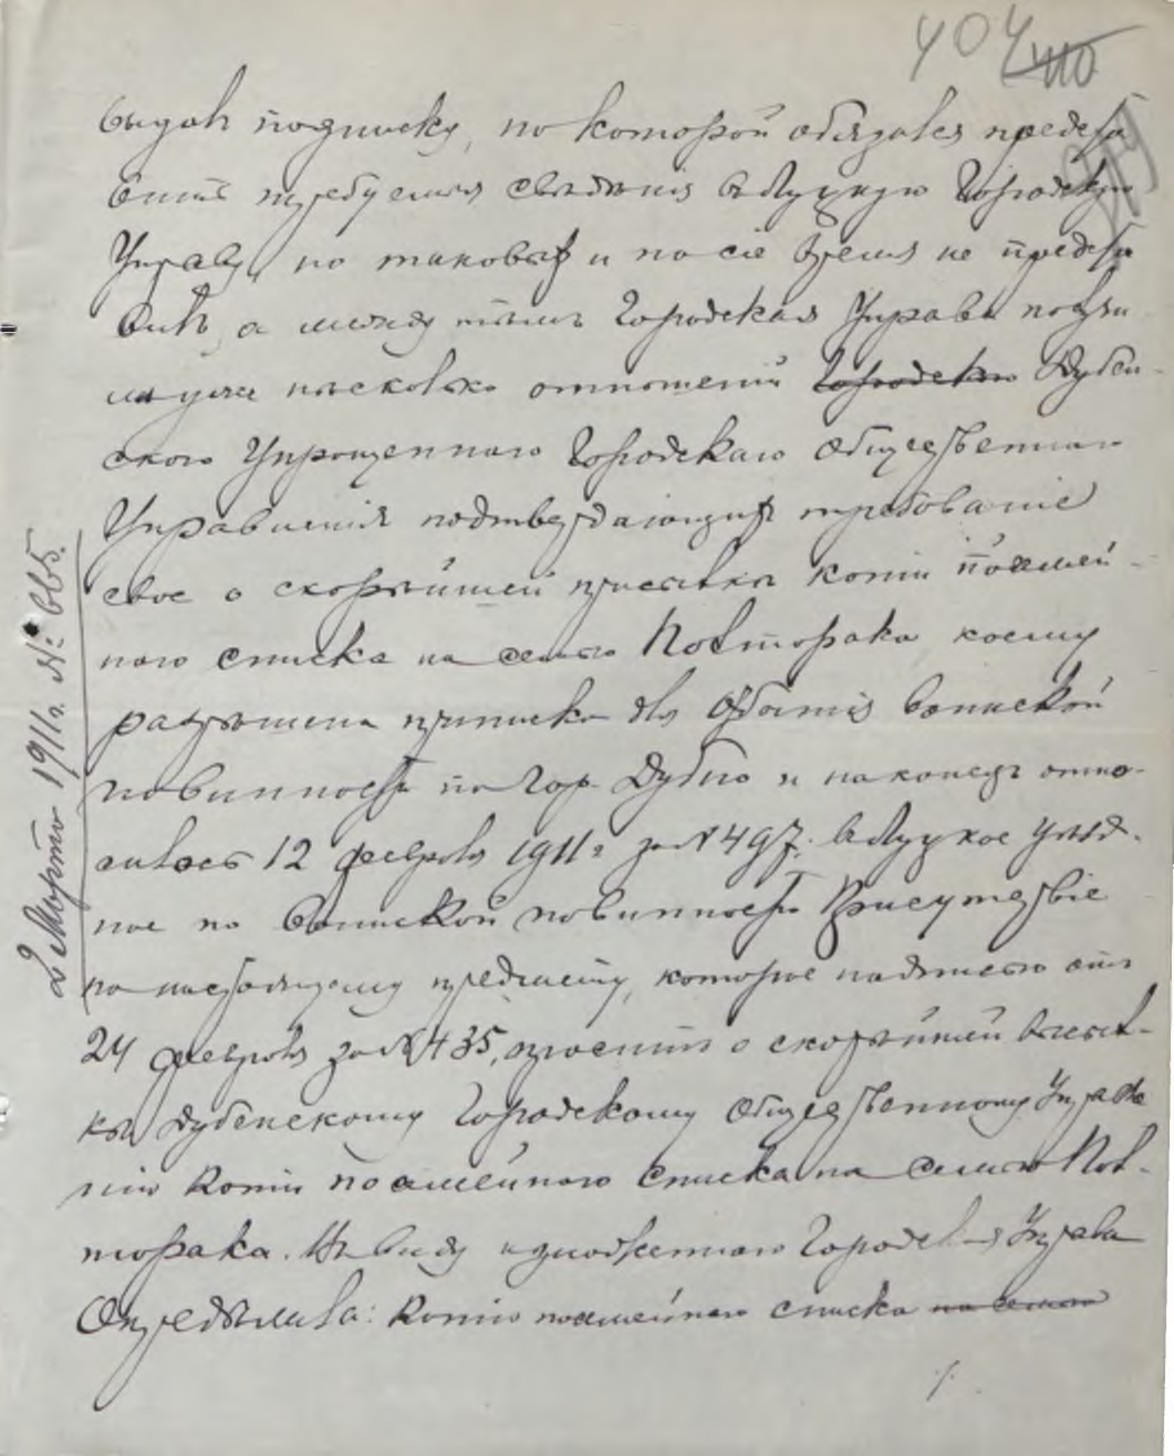 404 410
выдалъ подписку, по которой обязался предста
вить требуемыя свѣдѣнія въ Луцкую Городскую
Управу, но таковыхъ и по сіе время не предста
вилъ, а между тѣмъ Городская Управа получи
ла уже нѣсколько отношеній Городского Дубен-
ского Упрощеннаго Городскаго Общественнаго
Управленія подтверждающихъ требованіе
свое о скорѣйшей присылкѣ копіи посемей-
наго списка на семью Повторака коему
разрѣшена приписка для отбытія воинской
повинности по гор. Дубно и наконецъ отно-
силось 12 февраля 1911 г за № 497. въ Луцкое Уѣзд-
ное по воинской повинности Присутствіе
по настоящему предмету, которое надписью отъ
24 февраля за № 435, проситъ о скорѣйшей высыл-
кѣ Дубенскому Городскому Общественному Управле
нію копіи посемейнаго списка на семью Пов-
торака. Въ виду изложеннаго Городская Управа
Опредѣлила: копію посемейнаго списка на семью
2 Марта 1911 г. №: 665.